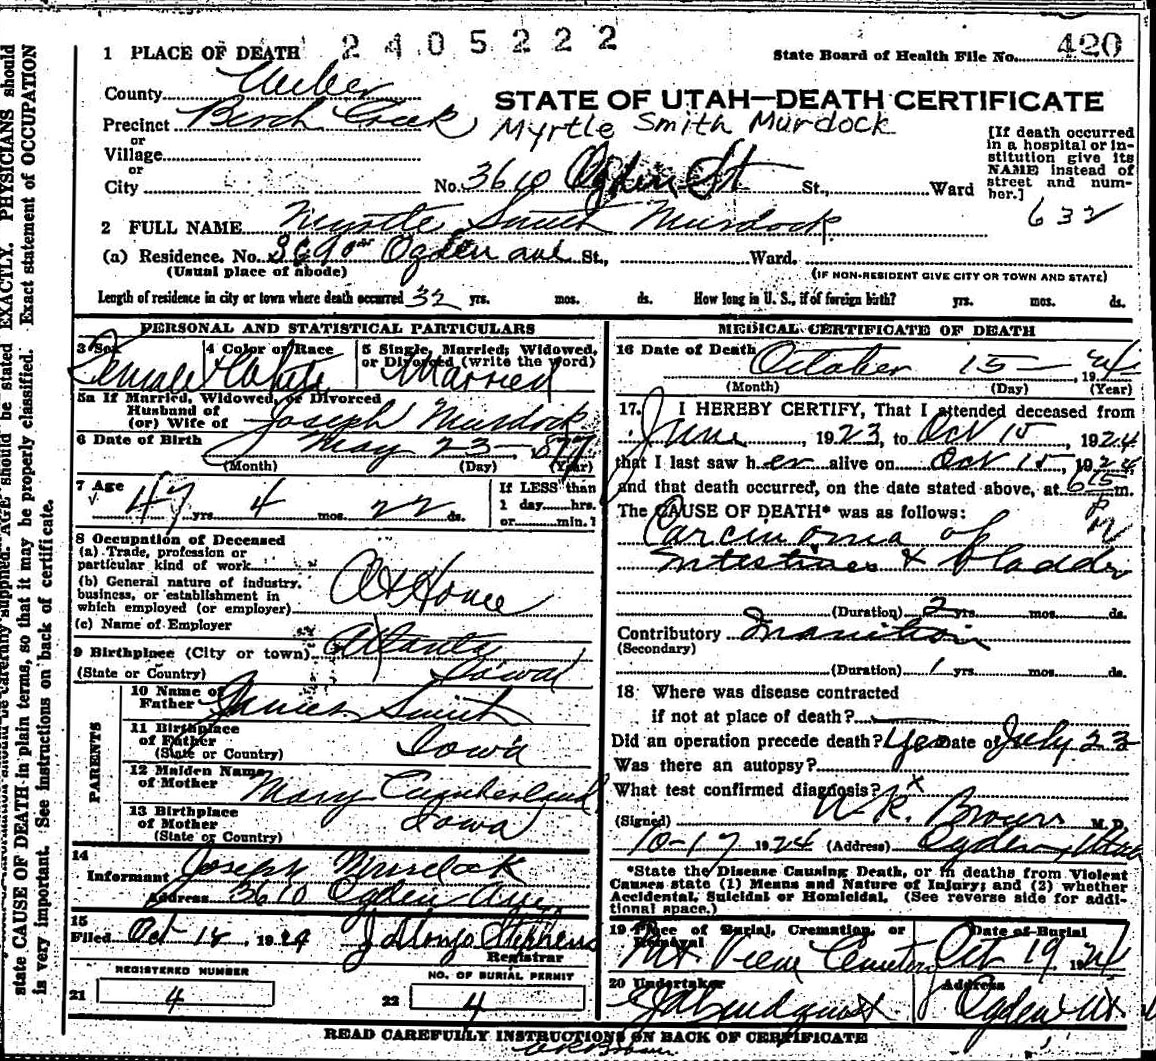 2405222
State Board of Health File No. 420
1 PLACE OF DEATH
County Weber
STATE OF UTAH—DEATH CERTIFICATE
Precinct Birch Creek
Myrtle Smith Murdock
or
Village
or
City
No. 3610 Ogden St St., Ward
[If death occurred
in a hospital or in-
stitution give its
NAME instead of
street and num-
ber.]
632
2 FULL NAME Myrtle Smith Murdock
(a) Residence. No. Ogden ave St., Ward.
(Usual place of abode)
(IF NON-RESIDENT GIVE CITY OR TOWN AND STATE)
Length of residence in city or town where death occurred 32 yrs. mos. ds. How long in U. S., if of foreign birth? yrs. mos. ds.
PERSONAL AND STATISTICAL PARTICULARS
3 Sex
Female
4 Color or Race
White
5 Single, Married, Widowed,
or Divorced (write the word)
Married
5a If Married, Widowed, or Divorced
Husband of
(or) Wife of Joseph Murdock
6 Date of Birth May 23, 1877
(Month) (Day) (Year)
7 Age
47 yrs 4 mos. 22 ds.
If LESS than
1 day hrs.
or min.?
8 Occupation of Deceased
(a) Trade, profession or
particular kind of work
(b) General nature of industry,
business, or establishment in
which employed (or employer)
At Home
(c) Name of Employer
9 Birthplace (City or town) Atlanty
(State or Country) Iowa
PARENTS
10 Name of
Father James Smith
11 Birthplace
of Father
(State or Country) Iowa
12 Maiden Name
of Mother Mary Cumberland
13 Birthplace
of Mother
(State or Country) Iowa
14
Informant Joseph Murdock
Address 3610 Ogden Ave
15
Filed Oct 18, 1924 J Alonzo Stephens
Registrar
REGISTERED NUMBER
21 4
NO. OF BURIAL PERMIT
22 4
MEDICAL CERTIFICATE OF DEATH
16 Date of Death October 15 1924
(Month) (Day) (Year)
17. I HEREBY CERTIFY, That I attended deceased from
June, 1923, to Oct 15, 1924
that I last saw her alive on Oct 15, 1924
and that death occurred, on the date stated above, at 6 15 m.
P M
The CAUSE OF DEATH* was as follows:
Carcinoma of
intestines & bladder
(Duration) 2 yrs. mos. ds.
Contributory Inanition
(Secondary)
(Duration) 1 yrs. mos. ds.
18 Where was disease contracted
if not at place of death?
Did an operation precede death? Yes Date of July 23
Was there an autopsy?
What test confirmed diagnosis? x
(Signed) W.R. Brown M. D.
10-17 1924 (Address) Ogden, Utah
*State the Disease Causing Death, or in deaths from Violent
Causes state (1) Means and Nature of Injury; and (2) whether
Accidental, Suicidal or Homicidal. (See reverse side for addi-
tional space.)
19 Place of Burial, Cremation, or
Removal
Mt View Cemetery
Date of Burial
Oct 19 1924
20 Undertaker
Address
Ogden Ut
READ CAREFULLY INSTRUCTIONS ON BACK OF CERTIFICATE
EXACTLY. PHYSICIANS should
Exact statement of OCCUPATION
AGE should be stated
be properly classified.
state CAUSE OF DEATH in plain terms, so that it may
is very important. See instructions on back of certificate.